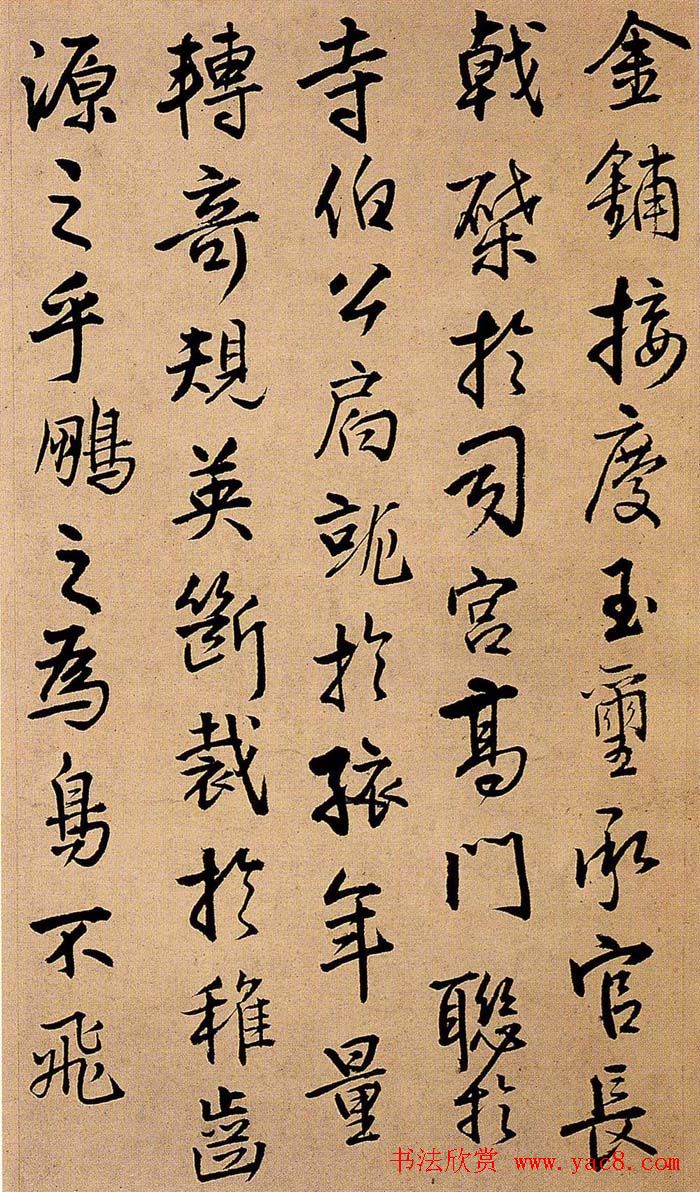 金鋪接慶玉璽承官長
戟磔於司宮高門聯於
寺伯公扃於孩年量
轉奇規英斷裁於稚齒
源之乎鵬之為鳥不飛
书法欣赏 www.yac8.com